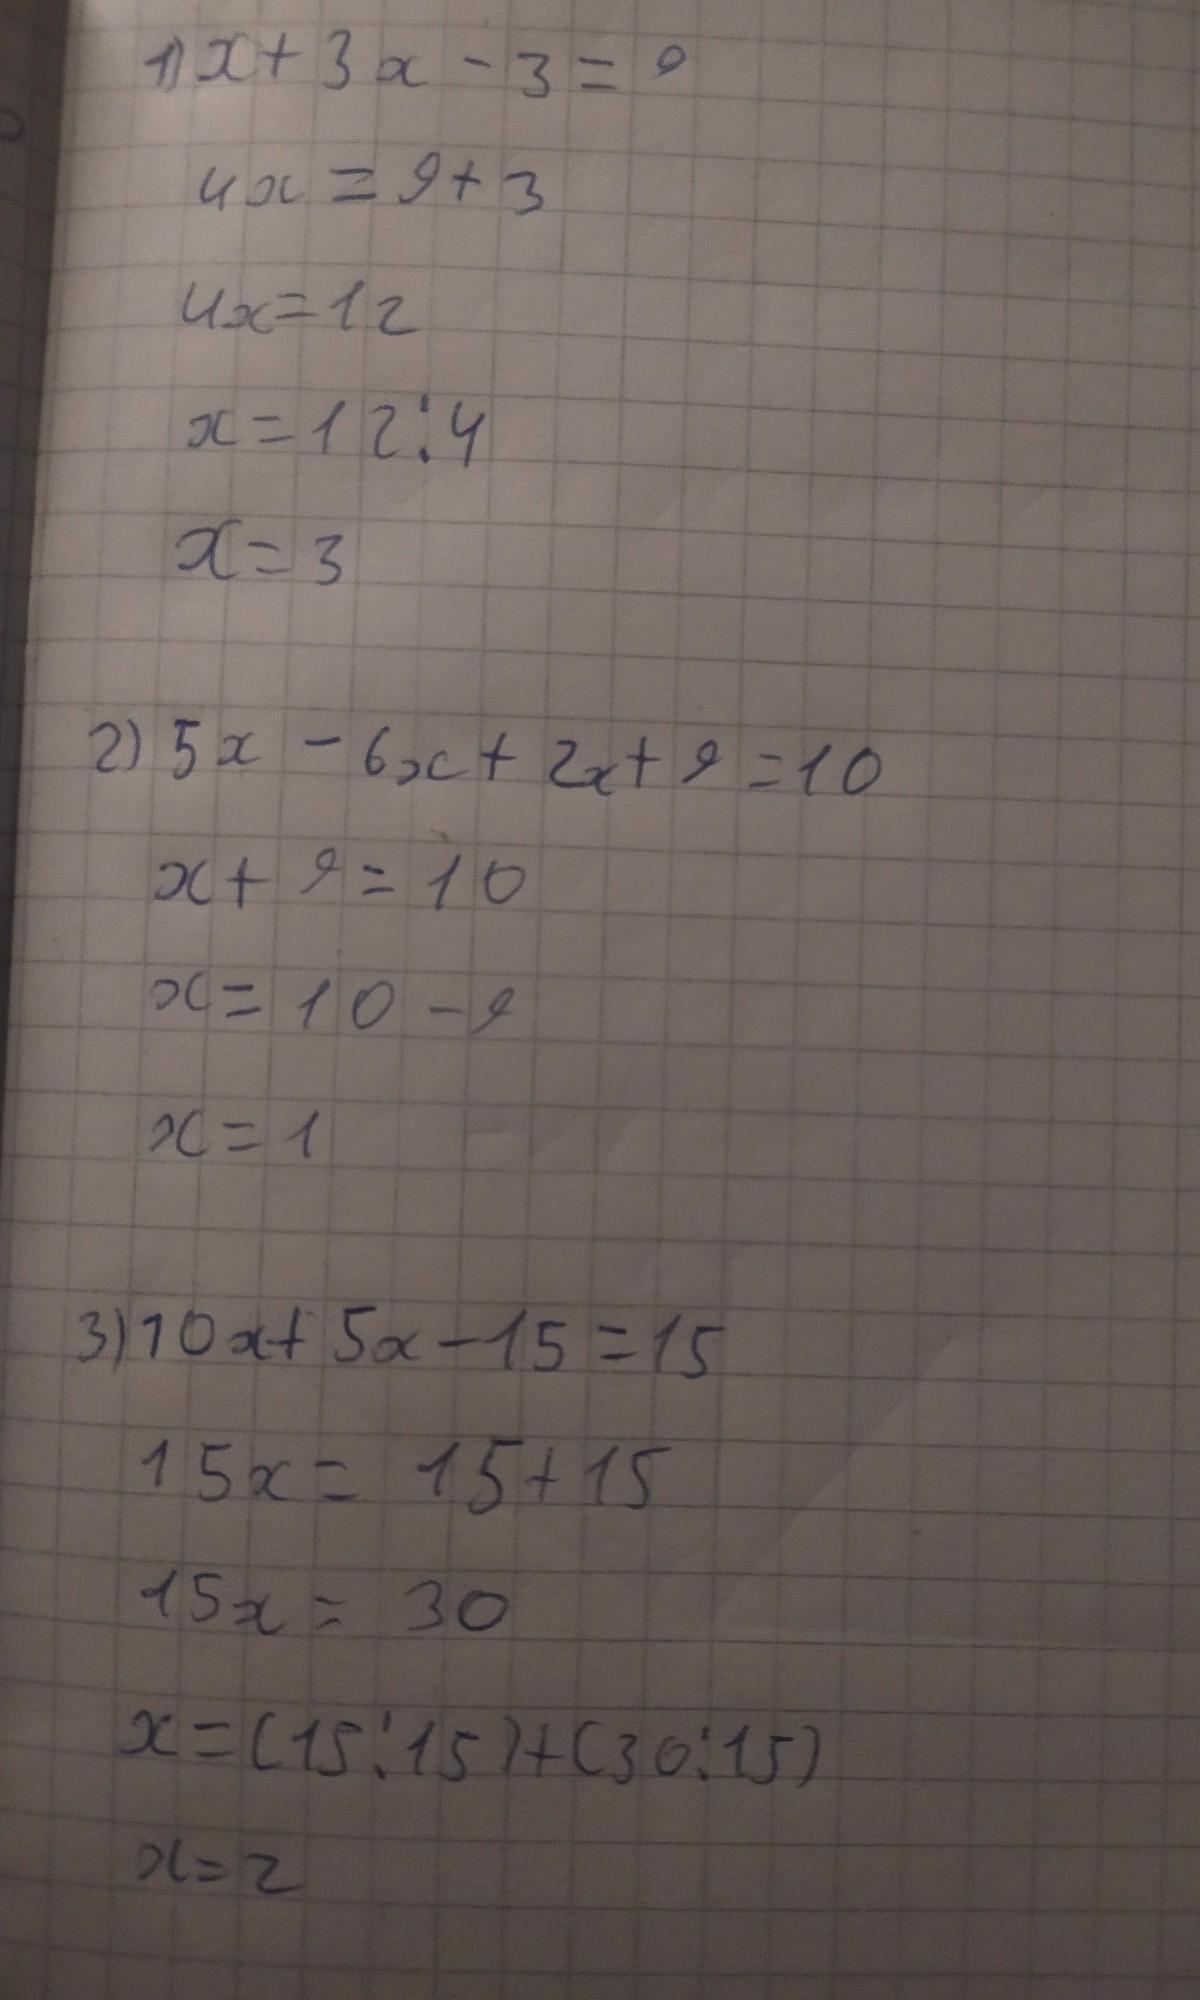 1) x + 3x - 3 = 9
4x = 9 + 3
4x = 12
x = 12 : 4
x = 3
2) 5x - 6x + 2x + 9 = 10
x + 9 = 10
x = 10 - 9
x = 1
3) 10x + 5x - 15 = 15
15x = 15 + 15
15x = 30
x = (15 : 15) + (30 : 15)
x = 2